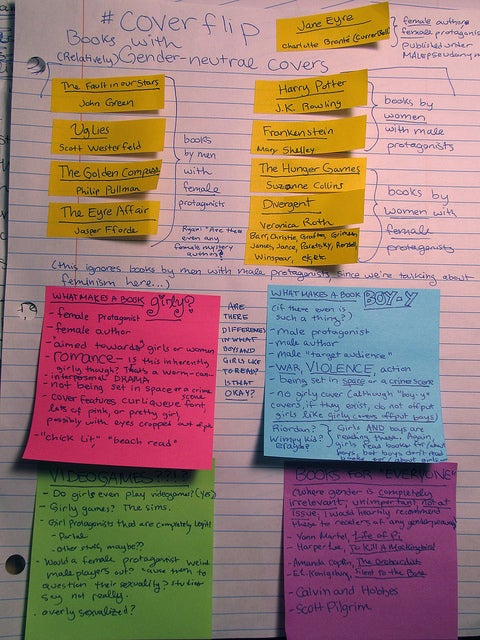 #coverflip
Books with
(Relatively) Gender-neutral covers
Jane Eyre
Charlotte Brontë (Currer Bell)
female author
female protagonist
published under
MALE pseudonym
The Fault in our Stars
John Green
Uglies
Scott Westerfeld
The Golden Compass
Philip Pullman
The Eyre Affair
Jasper Fforde
books
by men
with
female
protagonists
Harry Potter
J.K. Rowling
Frankenstein
Mary Shelley
books by
women
with male
protagonists
The Hunger Games
Suzanne Collins
Divergent
Veronica Roth
Barr, Christie, Grafton, Grimes,
James, Jance, Paretsky, Rendell,
Winspear, etc, etc
books by
women with
female
protagonists
Ryan: "Are there
even any
female mystery
authors?"
(this ignores books by men with male protagonists, since we're talking about
feminism here...)
WHAT MAKES A BOOK girly?
- female protagonist
- female author
- aimed towards girls or women
- romance - is this inherently
girly though? That's a worm-can
- interpersonal DRAMA
- not being set in space or a crime
scene
- cover features curliqueue font,
lots of pink, or pretty girl,
possibly with eyes cropped out of pic
- "chick lit" "beach read"
ARE
THERE
DIFFERENCES
IN WHAT
BOYS AND
GIRLS LIKE
TO READ?
IS THAT
OKAY?
WHAT MAKES A BOOK BOY-Y
(if there even is
such a thing?)
- male protagonist
- male author
- male "target audience"
- WAR, VIOLENCE, action
- being set in space or a crime scene
- no girly cover (although "boy-y"
covers, if they exist, do not offput
girls like girly covers offput boys)
Riordan?
Wimpy kid?
Eragon?
Girls AND boys are
reading these. Again,
girls read books for/about
boys but boys don't read
books for/about girls
VIDEOGAMES?!?
- Do girls even play videogames? (yes)
- Girly games? The sims.
- Girl Protagonists that are completely legit?
- Portal
- other stuff, maybe??
- Would a female protagonist weird
male players out? cause them to
question their sexuality? studies
say not really.
- overly sexualized?
BOOKS FOR "EVERYONE"
(Where gender is completely
irrelevant, unimportant, not at
issue; I would heartily recommend
these to readers of any gender/sexuality)
- Yann Martel, Life of Pi
- Harper Lee, To Kill A Mockingbird
- Amanda Coplin, The Orchardist
- E.L. Konigsburg, Silent to the Bone
- Calvin and Hobbes
- Scott Pilgrim